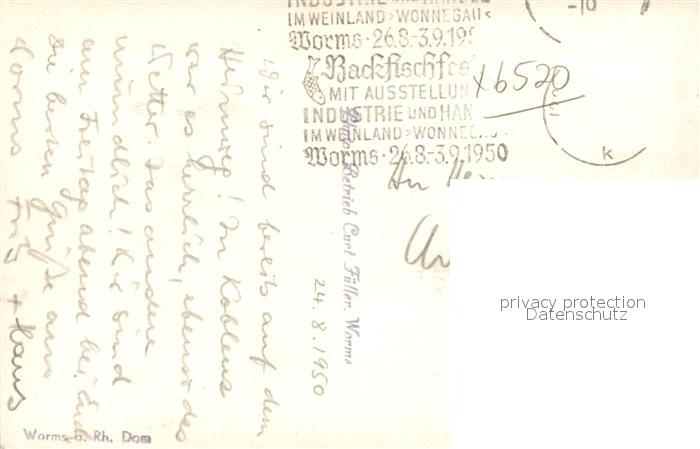 INDUSTRIE UND HANDEL
IM WEINLAND >WONNEGAU<
Worms · 26.8.-3.9.195
-10
Backfischfes
MIT AUSSTELLUN
INDUSTRIE UND HAN
IM WEINLAND >WONNEG
Worms · 26.8.-3.9.1950
x6520
k
An
Wir sind bereits auf dem
Heimweg! In Koblenz
war es herrlich, ebenso das
Wetter. Das andere
mündlich! Wir sind
am Freitag abend bei Euch
Die besten Grüße aus
Worms Fritz + Hans
24.8.1950
Photo Betrieb Curt Füller, Worms
Worms a. Rh. Dom
privacy protection
Datenschutz